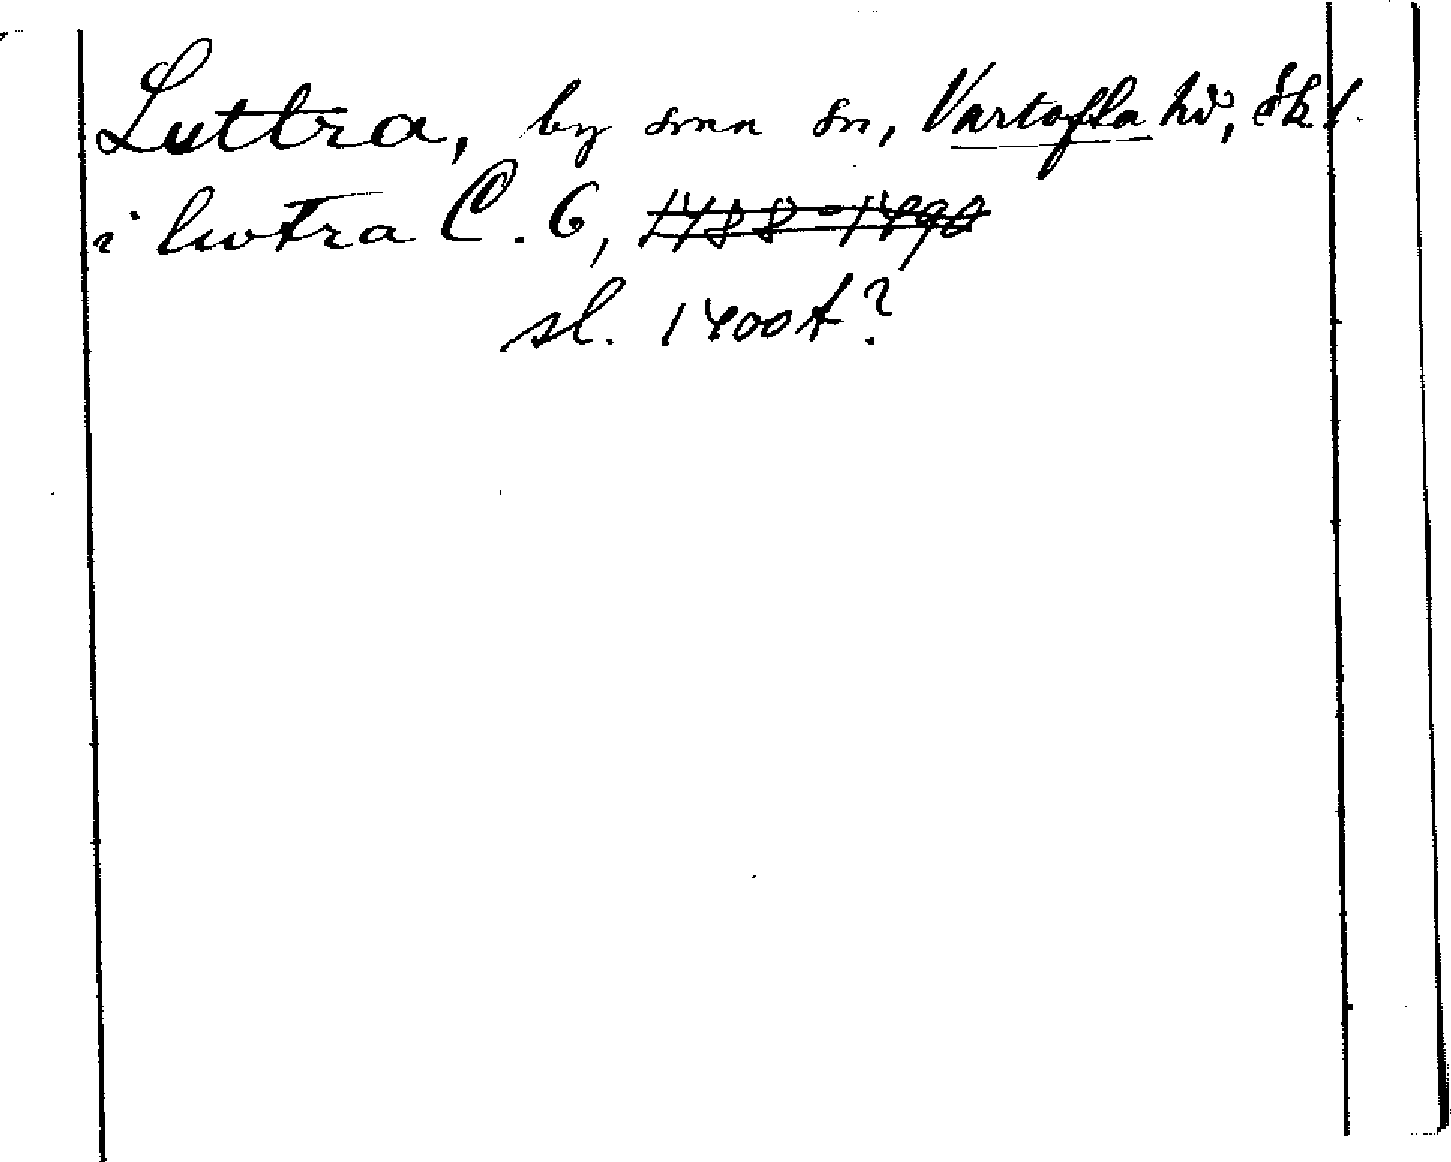 Luttra, by smn sn, Vartofta hd, Sk l.
i lwtra C. 6, 1488-1490
sl. 1400 t?